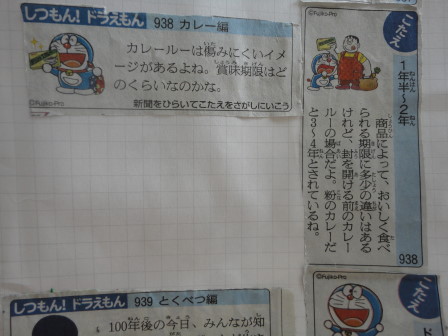 しつもん!ドラえもん 938 カレー編
カレールーは傷みにくいイメ
ージがあるよね。賞味期限はど
のくらいなのかな。
新聞をひらいてこたえをさがしにいこう
©Fujiko-Pro
©Fujiko-Pro
こたえ
1年半〜2年
商品によって、おいしく食べ
られる期限に多少の違いはある
けれど、封を開ける前のカレー
ルーの場合だよ。粉のカレーだ
と3〜4年とされているね。
938
しつもん!ドラえもん 939 とくべつ編
100年後の今日、みんなが知
©Fujiko-Pro